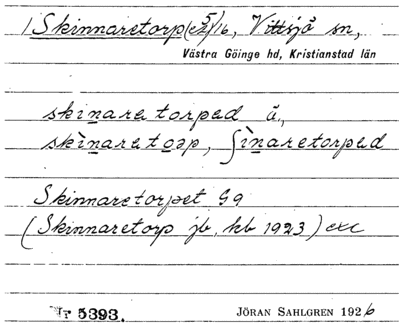 1 Skinnaretorp 5/16, Vittsjö sn,
Västra Göinge hd, Kristianstad län
skinaretorpəd ä.,
skìnaretoəp, ʃìnaretorpəd
Skinnaretorpet Gg
(Skinnaretorp jb, kb 1923) exc
Nr 5393.
JÖRAN SAHLGREN 1926